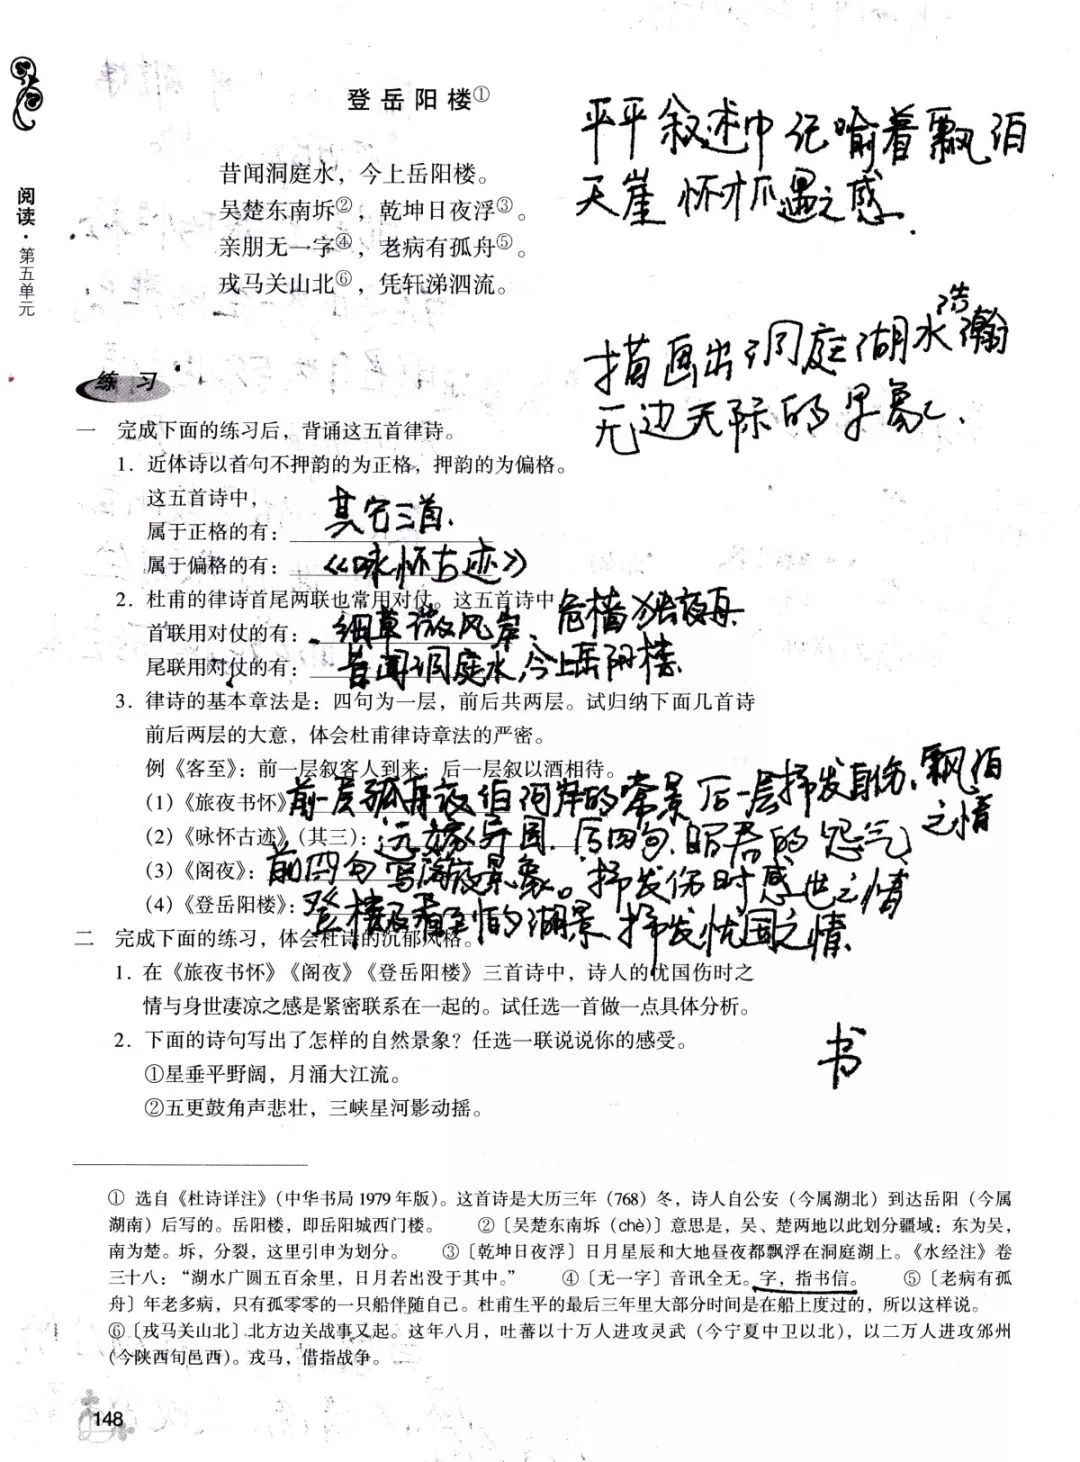 登岳阳楼①
昔闻洞庭水，今上岳阳楼。
吴楚东南坼②，乾坤日夜浮③。
亲朋无一字④，老病有孤舟⑤。
戎马关山北⑥，凭轩涕泗流。
平平叙述中记喻着飘泊
天崖怀才不遇之感.
描画出洞庭湖水浩瀚
无边无际的早象.
阅读·第五单元
练习
一 完成下面的练习后，背诵这五首律诗。
1. 近体诗以首句不押韵的为正格，押韵的为偏格。
这五首诗中，
属于正格的有：其它三首.
属于偏格的有：《咏怀古迹》
2. 杜甫的律诗首尾两联也常用对仗。这五首诗中
首联用对仗的有：细草微风岸、危樯独夜舟
尾联用对仗的有：昔闻洞庭水,今上岳阳楼.
3. 律诗的基本章法是：四句为一层，前后共两层。试归纳下面几首诗
前后两层的大意，体会杜甫律诗章法的严密。
例《客至》：前一层叙客人到来；后一层叙以酒相待。
(1)《旅夜书怀》前一层孤舟夜泊河岸的常景后一层抒发身伤、飘泊之情
(2)《咏怀古迹》(其三)：远嫁异国.后四句.昭君的怨气
(3)《阁夜》：前四句写深夜景象。抒发伤时感世之情
(4)《登岳阳楼》：登楼及看到的湖景.抒发忧国之情.
二 完成下面的练习，体会杜诗的沉郁风格。
1. 在《旅夜书怀》《阁夜》《登岳阳楼》三首诗中，诗人的忧国伤时之
情与身世凄凉之感是紧密联系在一起的。试任选一首做一点具体分析。
2. 下面的诗句写出了怎样的自然景象？任选一联说说你的感受。
①星垂平野阔，月涌大江流。
②五更鼓角声悲壮，三峡星河影动摇。
书
① 选自《杜诗详注》(中华书局1979年版)。这首诗是大历三年（768）冬，诗人自公安（今属湖北）到达岳阳（今属
湖南）后写的。岳阳楼，即岳阳城西门楼。 ②〔吴楚东南坼（chè）〕意思是，吴、楚两地以此划分疆域：东为吴，
南为楚。坼，分裂，这里引申为划分。 ③〔乾坤日夜浮〕日月星辰和大地昼夜都飘浮在洞庭湖上。《水经注》卷
三十八：“湖水广圆五百余里，日月若出没于其中。” ④〔无一字〕音讯全无。字，指书信。 ⑤〔老病有孤
舟〕年老多病，只有孤零零的一只船伴随自己。杜甫生平的最后三年里大部分时间是在船上度过的，所以这样说。
⑥〔戎马关山北〕北方边关战事又起。这年八月，吐蕃以十万人进攻灵武（今宁夏中卫以北），以二万人进攻邠州
(今陕西旬邑西)。戎马，借指战争。
148